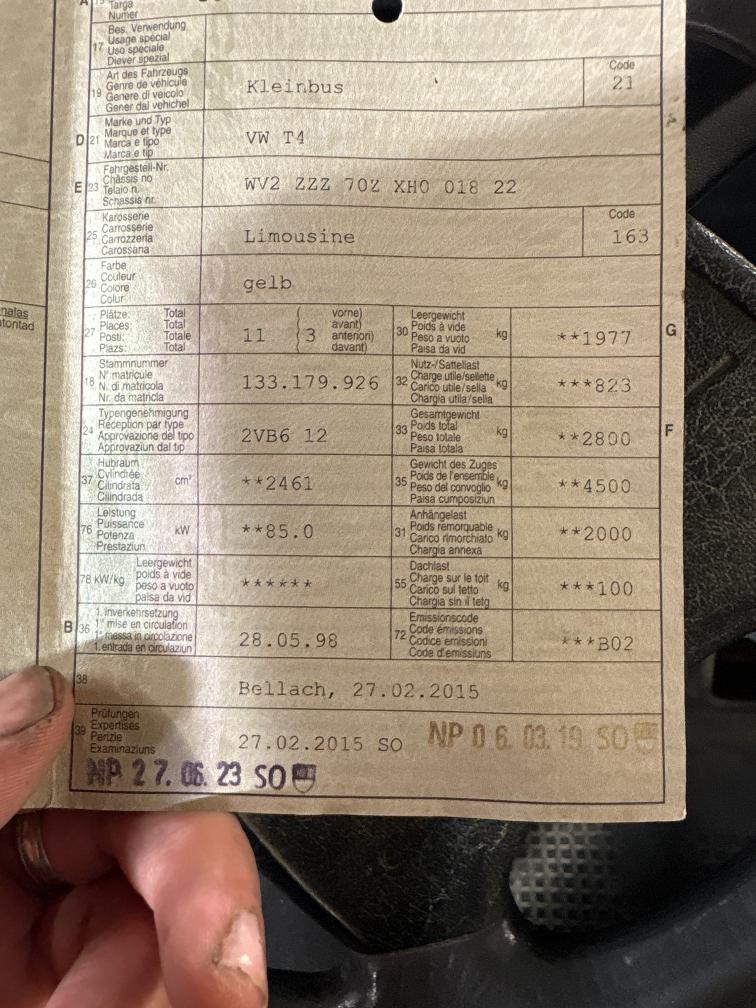 A 15 Targa
Numer
Bes. Verwendung
17 Usage spécial
Uso speciale
Diever spezial
Art des Fahrzeugs
19 Genre de véhicule
Genere di veicolo
Gener dal vehichel
Kleinbus
Code
21
Marke und Typ
D 21 Marque et type
Marca e tipo
Marca e tip
VW T4
Fahrgestell-Nr.
E 23 Châssis no
Telaio n.
Schassis nr.
WV2 ZZZ 70Z XH0 018 22
Karosserie
25 Carrosserie
Carrozzeria
Carossaria
Limousine
Code
163
Farbe
26 Couleur
Colore
Colur
gelb
Plätze: Total
27 Places: Total
Posti: Totale
Plazs: Total
11 { 3
vorne)
avant)
anteriori)
davant)
Leergewicht
30 Poids à vide kg
Peso a vuoto
Paisa da vid
**1977
G
Stammnummer
18 N° matricule
N. di matricola
Nr. da matricla
133.179.926
Nutz-/Sattellast
32 Charge utile/sellette kg
Carico utile/sella
Chargia utila/sella
***823
Typengenehmigung
24 Réception par type
Approvazione del tipo
Approvaziun dal tip
2VB6 12
Gesamtgewicht
33 Poids total kg
Peso totale
Paisa totala
**2800
F
Hubraum
37 Cylindrée cm³
Cilindrata
Cilindrada
**2461
Gewicht des Zuges
35 Poids de l'ensemble kg
Peso del convoglio
Paisa cumposiziun
**4500
Leistung
76 Puissance kW
Potenza
Prestaziun
**85.0
Anhängelast
31 Poids remorquable kg
Carico rimorchiato
Chargia annexa
**2000
Leergewicht
78 kW/kg poids à vide
peso a vuoto
paisa da vid
******
Dachlast
55 Charge sur le toit kg
Carico sul tetto
Chargia sin il tetg
***100
1. Inverkehrsetzung
B 36 1re mise en circulation
1. messa in circolazione
1. entrada en circulaziun
28.05.98
Emissionscode
72 Code émissions
Codice emissioni
Code d'emissiuns
***B02
38
Bellach, 27.02.2015
Prüfungen
39 Expertises
Perizie
Examinaziuns
27.02.2015 SO
NP 0 6. 03. 19 SO
NP 2 7. 06. 23 SO